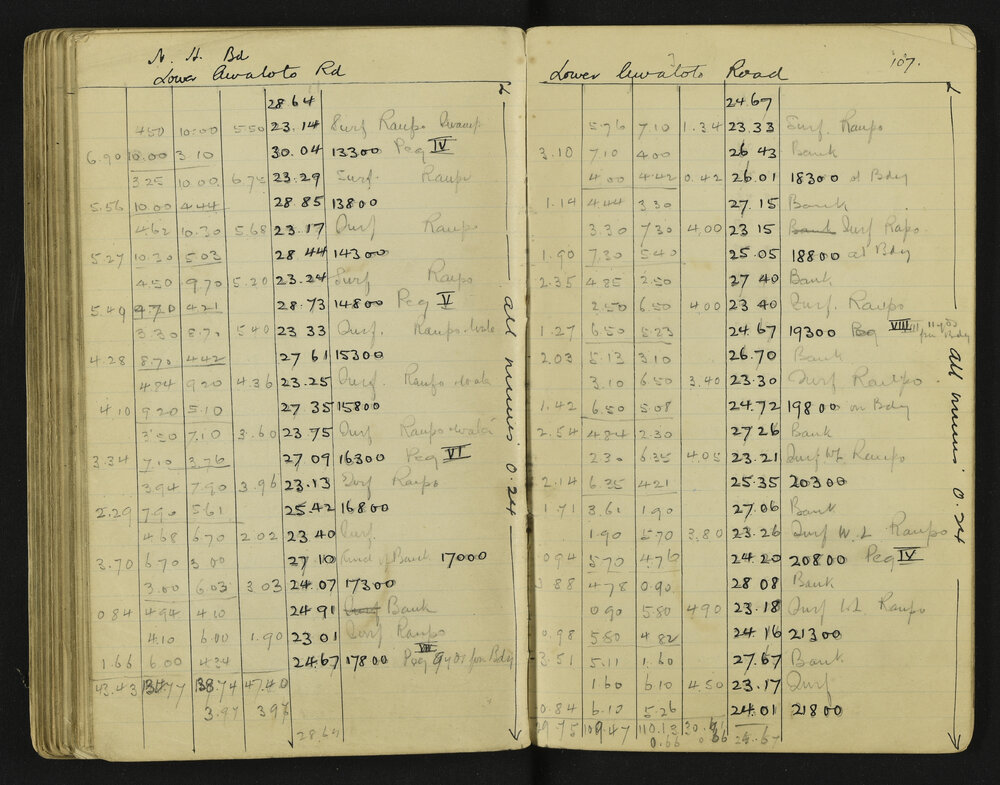 N. H. Bd
Lower Awatoto Rd
28.64
4.50 10.00 5.50 23.14 Surf Raupo Swamp
6.90 10.00 3.10 30.04 13300 Peg IV
3.25 10.00 6.75 23.29 Surf. Raupo
5.56 10.00 4.44 28.85 13800
4.62 10.30 5.68 23.17 Surf Raupo
5.27 10.30 5.03 28.44 14300
4.50 9.70 5.20 23.24 Surf Raupo
5.49 9.70 4.21 28.73 14800 Peg V
3.30 8.70 5.40 23.33 Surf. Raupo
4.28 8.70 4.42 27.61 15300
4.84 9.20 4.36 23.25 Surf. Raupo
4.10 9.20 5.10 27.35 15800
3.50 7.10 3.60 23.75 Surf Raupo
3.34 7.10 3.76 27.09 16300 Peg VI
3.94 7.90 3.96 23.13 Surf Raupo
2.29 7.90 5.61 25.42 16800
4.68 6.70 2.02 23.40 Surf.
3.70 6.70 3.00 27.10 End of Bank 17000
3.00 6.03 3.03 24.07 17300
0.84 4.94 4.10 24.91 Bank
4.10 6.00 1.90 23.01 Surf Raupo
1.66 6.00 4.34 24.67 17800 Peg VII 9 yds from Bdy
43.43 134.77 138.74 47.40
3.97 3.97
28.64
all minus 0.24
Lower Awatoto Road 107.
24.67
5.76 7.10 1.34 23.33 Surf. Raupo
3.10 7.10 4.00 26.43 Bank
4.00 4.42 0.42 26.01 18300 at Bdy
1.14 4.44 3.30 27.15 Bank
3.30 7.30 4.00 23.15 Bank Surf Rapo
1.90 7.30 5.40 25.05 18800 at Bdy
2.35 4.85 2.50 27.40 Bank
2.50 6.50 4.00 23.40 Surf. Raupo
1.27 6.50 5.23 24.67 19300 Peg VIII 11 yds from Bdy
2.03 5.13 3.10 26.70 Bank
3.10 6.50 3.40 23.30 Surf Raupo
1.42 6.50 5.08 24.72 19800 on Bdy
2.54 4.84 2.30 27.26 Bank
2.30 6.35 4.05 23.21 Surf WL Raupo
2.14 6.35 4.21 25.35 20300
1.71 3.61 1.90 27.06 Bank
1.90 5.70 3.80 23.26 Surf W.L Raupo
0.94 5.70 4.76 24.20 20800 Peg IV
3.88 4.78 0.90 28.08 Bank
0.90 5.80 4.90 23.18 Surf WL Raupo
0.98 5.80 4.82 24.16 21300
3.51 5.11 1.60 27.67 Bank
1.60 6.10 4.50 23.17 Surf
0.84 6.10 5.26 24.01 21800
29.75 109.47 110.13
0.66 24.67
all minus 0.24